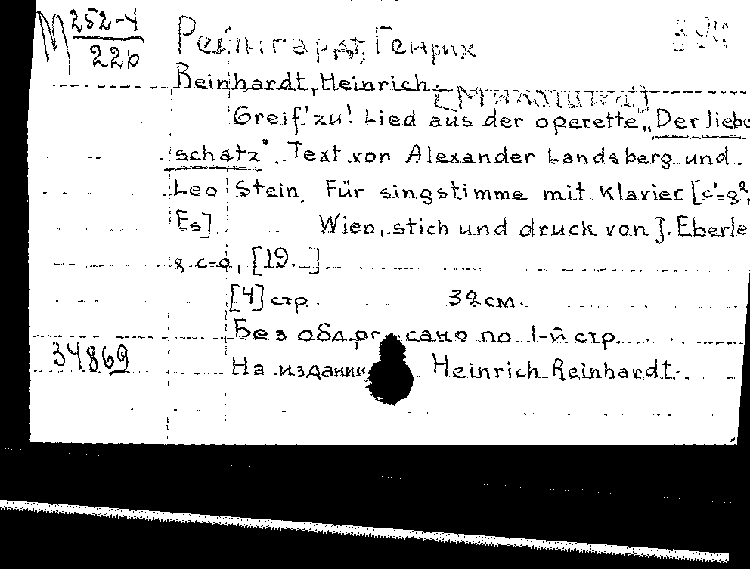 М 252-4
226
Рейнгардт, Генрих
Reinhardt, Heinrich.
Greif' zu! Lied aus der operette „Der liebe
schatz". Text von Alexander Landsberg und
Leo Stein. Für singstimme mit Klavier [c'-g²,
Es] Wien, stich und druck von J. Eberle
& C-o, [19...]
[4] стр. 32 см.
Без обл. сано по 1-й стр.
34869 На издании Heinrich Reinhardt.